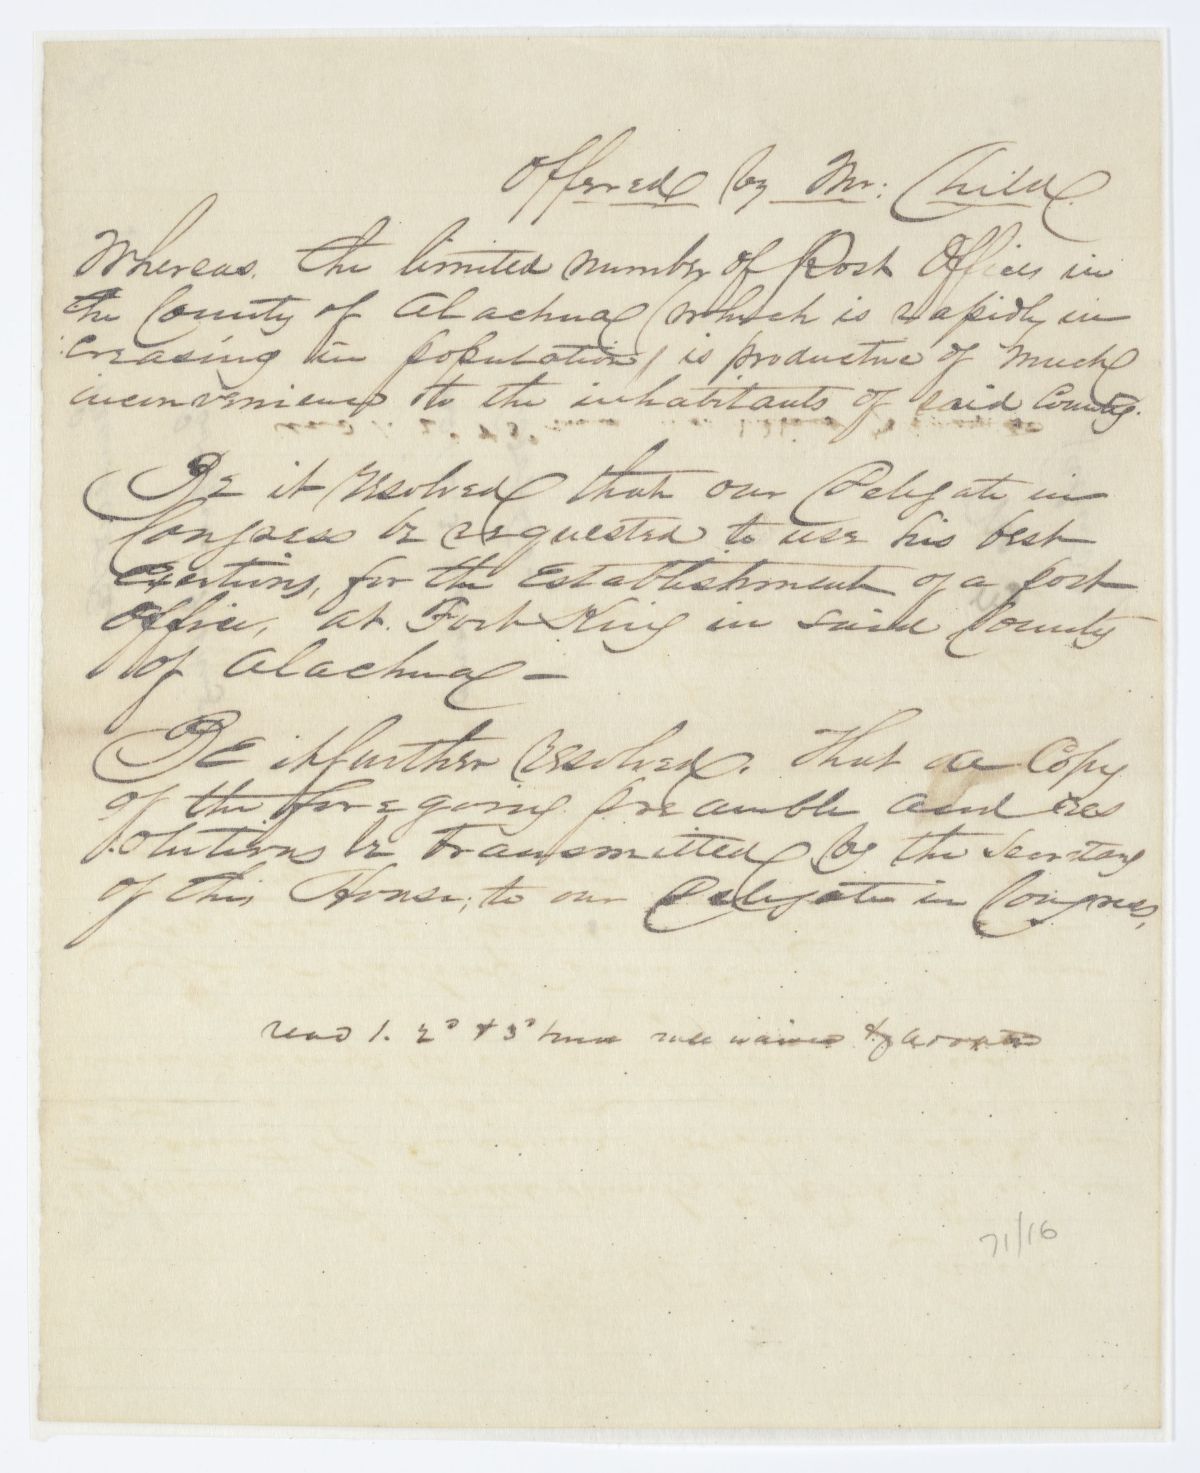 Offered by Mr: Child.
Whereas. the limited number of Post Offices in
the County of Alachua (which is rapidly in
creasing in population) is productive of much
inconvenience to the inhabitants of said County.
Be it resolved that our Delegate in
Congress be requested to use his best
Exertions, for the Establishment of a post
Office, at Fort King in said County
of Alachua —
BE it further resolved. That a Copy
of the foregoing preamble and res
olutions be transmitted by the Secretary
of this House, to our Delegate in Congress,
read 1. 2d & 3d time rule waived & adopted
71/16